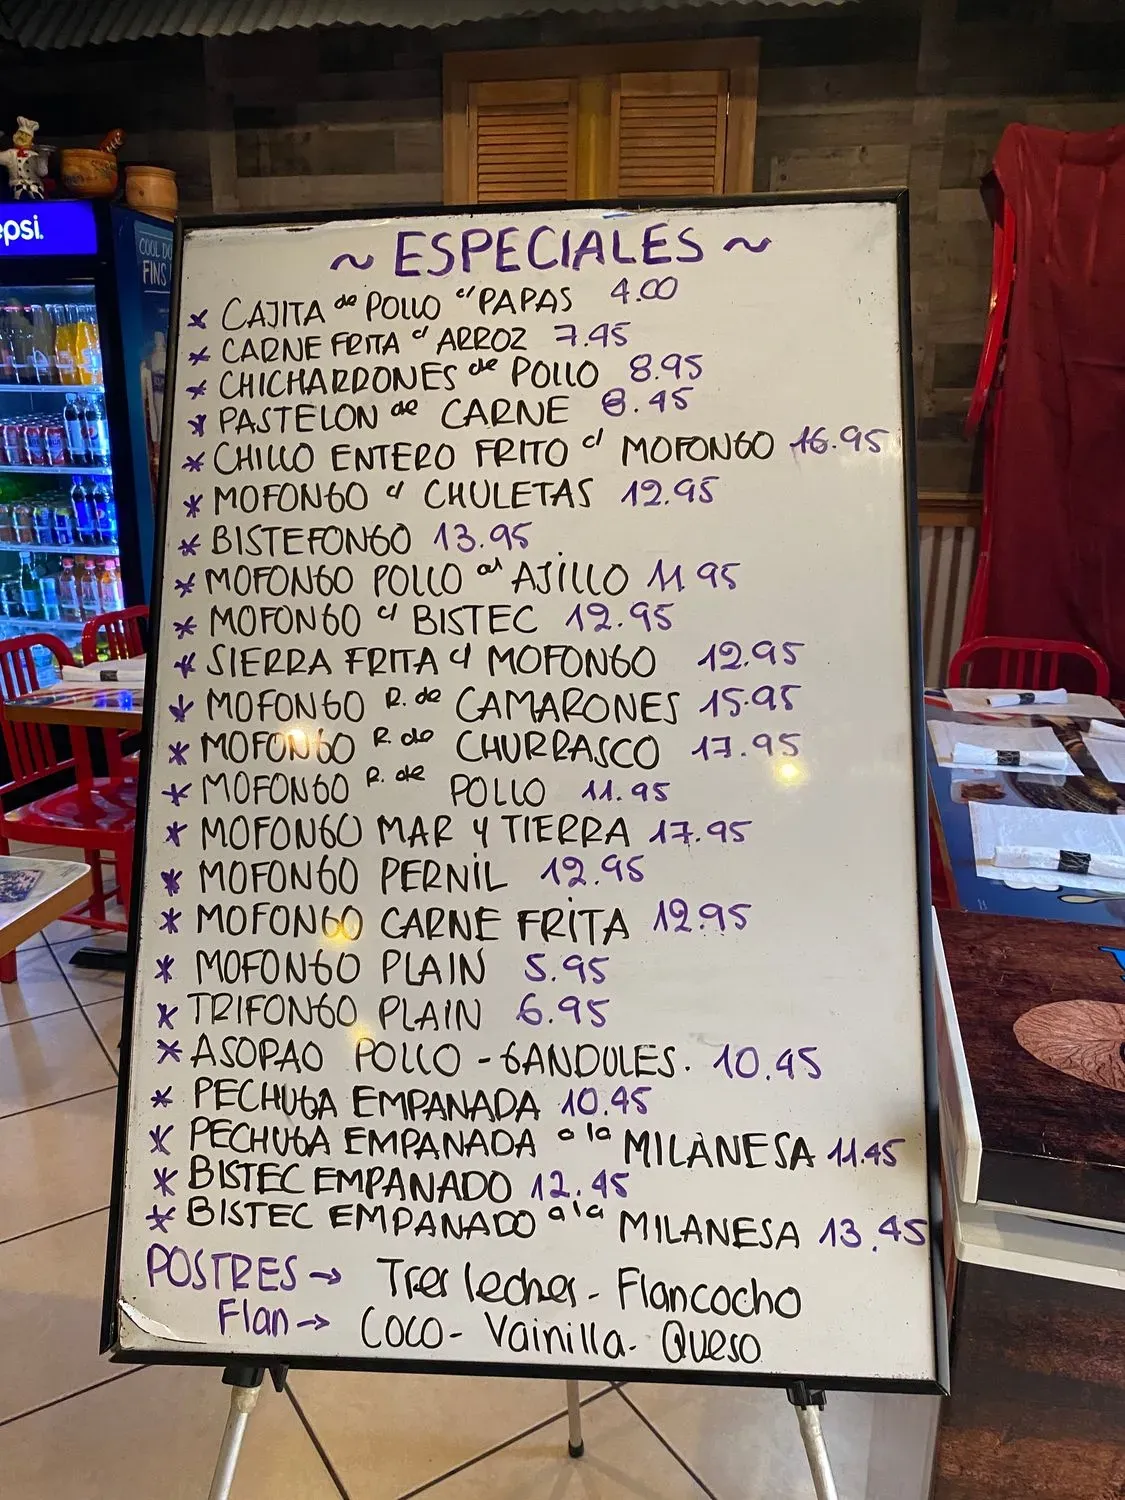 epsi.
COOL DO
FINS
~ ESPECIALES ~
* CAJITA de POLLO c/ PAPAS 4.00
* CARNE FRITA c/ ARROZ 7.45
* CHICHARRONES de POLLO 8.95
* PASTELON de CARNE 8.45
* CHILLO ENTERO FRITO c/ MOFONGO 16.95
* MOFONGO c/ CHULETAS 12.95
* BISTEFONGO 13.95
* MOFONGO POLLO al AJILLO 11.95
* MOFONGO c/ BISTEC 12.95
* SIERRA FRITA c/ MOFONGO 12.95
* MOFONGO R. de CAMARONES 15.95
* MOFONGO R. de CHURRASCO 17.95
* MOFONGO R. de POLLO 11.95
* MOFONGO MAR Y TIERRA 17.95
* MOFONGO PERNIL 12.95
* MOFONGO CARNE FRITA 12.95
* MOFONGO PLAIN 5.95
* TRIFONGO PLAIN 6.95
* ASOPAO POLLO - GANDULES. 10.45
* PECHUGA EMPANADA 10.45
* PECHUGA EMPANADA a la MILANESA 11.45
* BISTEC EMPANADO 12.45
* BISTEC EMPANADO a la MILANESA 13.45
POSTRES → Tres leches - Flancocho
Flan → Coco - Vainilla - Queso